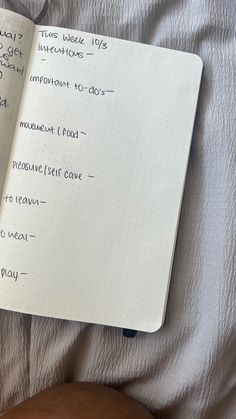 ual?
o get
ward
THIS Week 10/3
Intentions -
important to-do's -
movement | food -
pleasure/self care -
to learn -
o heal -
play -